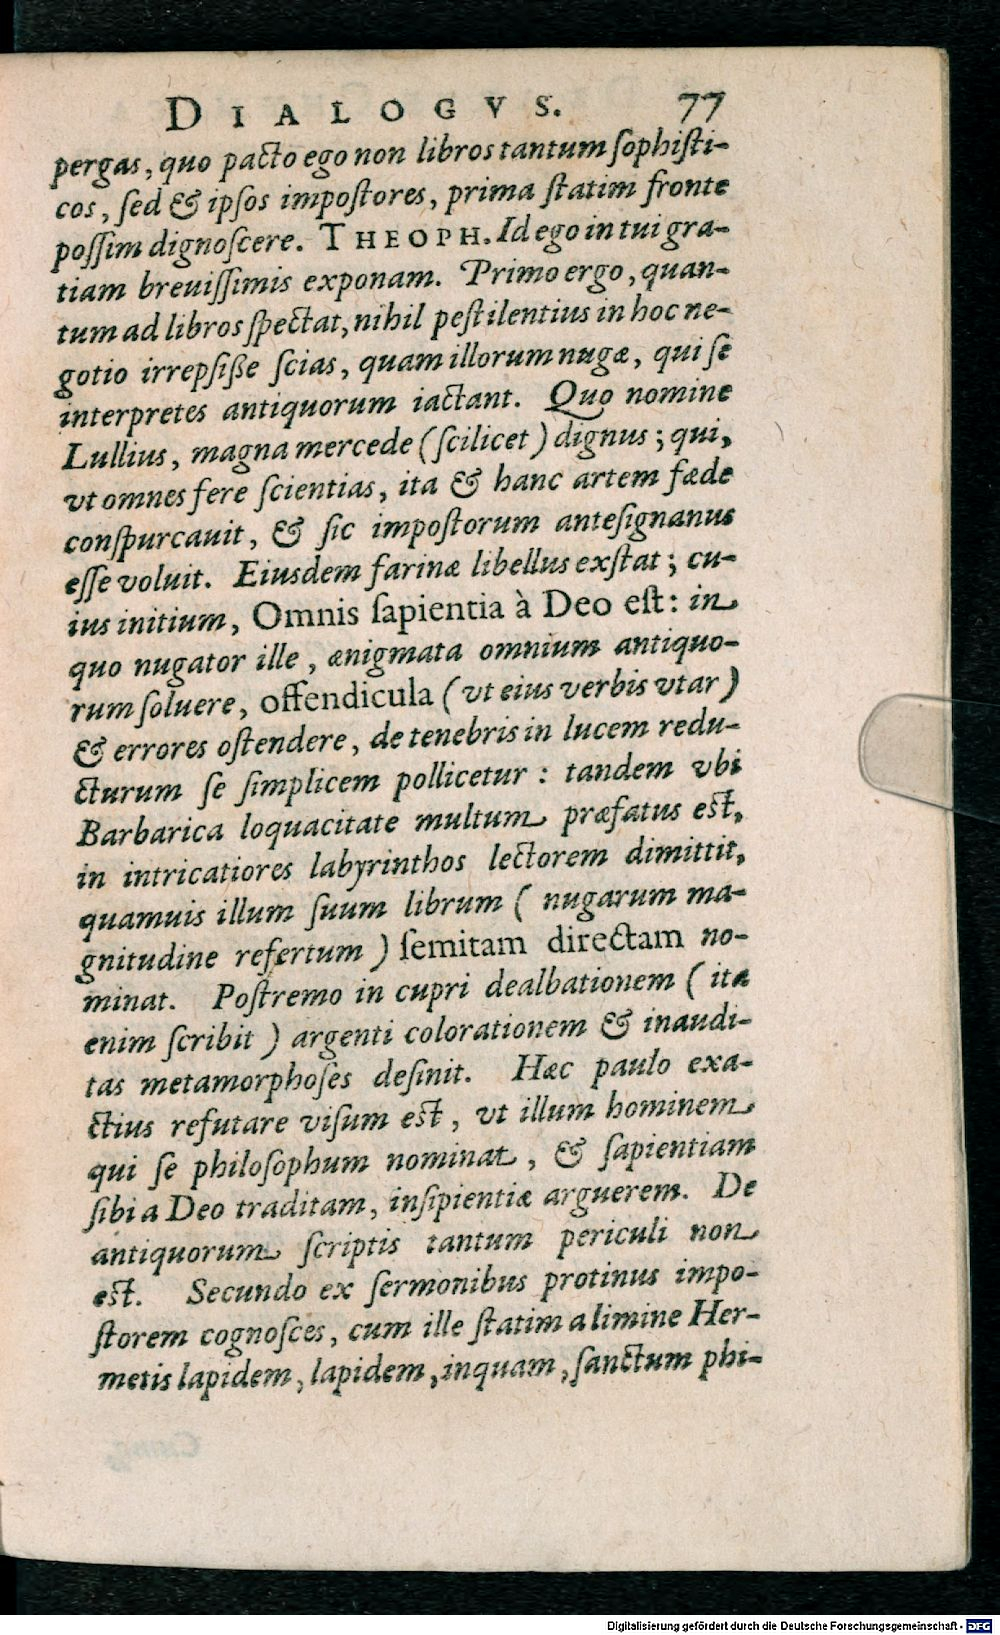 DIALOGVS. 77
pergas, quo pacto ego non libros tantum ſophiſti-
cos, ſed & ipſos impoſtores, prima ſtatim fronte
poſſim dignoſcere. THEOPH. Id ego in tui gra-
tiam breuiſſimis exponam. Primo ergo, quan-
tum ad libros ſpectat, nihil peſtilentius in hoc ne-
gotio irrepſiſſe ſcias, quam illorum nugæ, qui ſe
interpretes antiquorum iactant. Quo nomine
Lullius, magna mercede (ſcilicet) dignus; qui,
vt omnes fere ſcientias, ita & hanc artem fæde
conſpurcauit, & ſic impoſtorum anteſignanus
eſſe voluit. Eiusdem farinæ libellus exſtat; cu-
ius initium, Omnis ſapientia à Deo eſt: in
quo nugator ille, ænigmata omnium antiquo-
rum ſoluere, offendicula (vt eius verbis vtar)
& errores oſtendere, de tenebris in lucem redu-
cturum ſe ſimplicem pollicetur: tandem vbi
Barbarica loquacitate multum præfatus eſt,
in intricatiores labyrinthos lectorem dimittit,
quamuis illum ſuum librum (nugarum ma-
gnitudine refertum) ſemitam directam no-
minat. Poſtremo in cupri dealbationem (ita
enim ſcribit) argenti colorationem & inaudi-
tas metamorphoſes deſinit. Hæc paulo exa-
ctius refutare viſum eſt, vt illum hominem
qui ſe philoſophum nominat, & ſapientiam
ſibi a Deo traditam, inſipientiæ arguerem. De
antiquorum ſcriptis tantum periculi non
eſt. Secundo ex ſermonibus protinus impo-
ſtorem cognoſces, cum ille ſtatim a limine Her-
metis lapidem, lapidem, inquam, ſanctum phi-
Digitalisierung gefördert durch die Deutsche Forschungsgemeinschaft - DFG